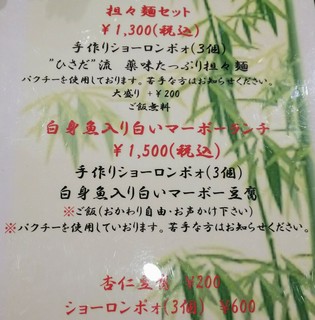 担々麺セット
￥1,300(税込)
手作りショーロンポォ(3個)
"ひさだ"流 薬味たっぷり担々麺
パクチーを使用しております。苦手な方はお知らせください。
大盛り +￥200
ご飯無料
白身魚入り白いマーボーランチ
￥1,500(税込)
手作りショーロンポォ(3個)
白身魚入り白いマーボー豆腐
※ご飯(おかわり自由・お声かけ下さい)
※パクチーを使用していおります。苦手な方はお知らせください。
杏仁豆腐 ￥200
ショーロンポォ(3個) ￥600